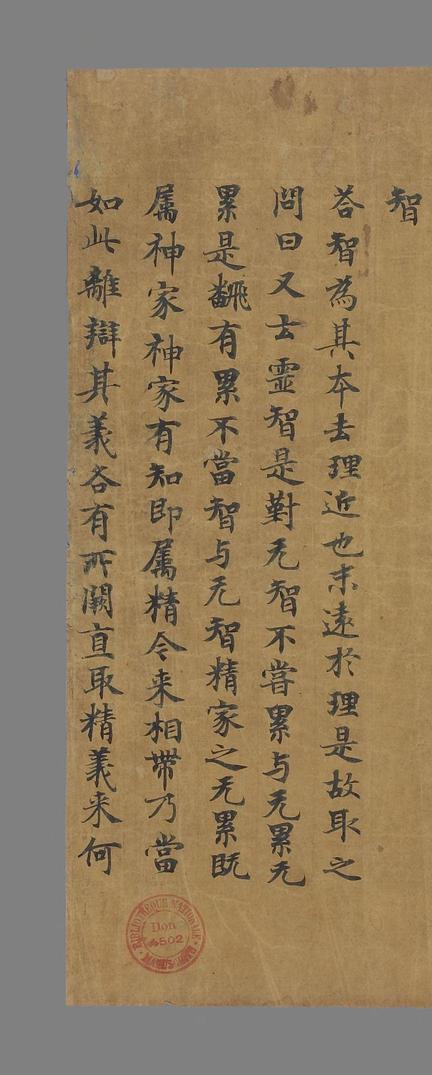 智
荅智為其本去理近也末遠於理是故取之
問曰又云靈智是對无智不嘗累与无累无
累是翻有累不當智与无智精家之无累既
属神家神家有知即属精令来相帶乃當
如此離辯其義各有所闕直取精義来何
BIBLIOTHEQUE NATIONALE
Don
4502